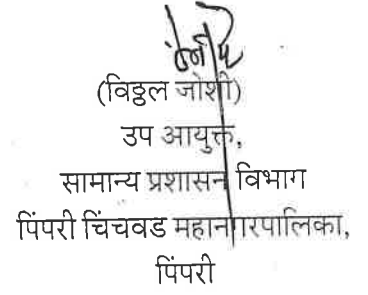 (विठ्ठल जोशी)
उप आयुक्त,
सामान्य प्रशासन विभाग
पिंपरी चिंचवड महानगरपालिका,
पिंपरी